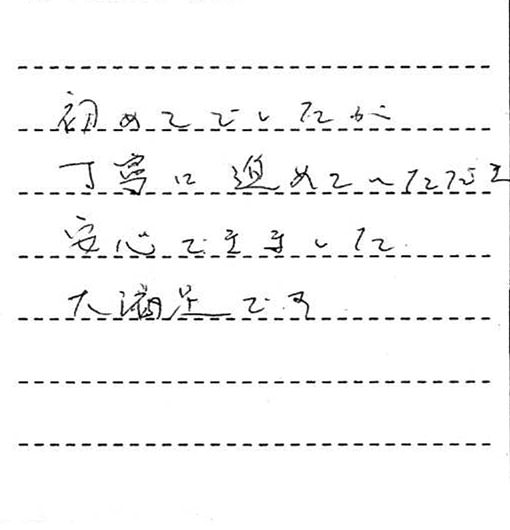 初めてでしたが
丁寧に進めていただき
安心できました
大満足です